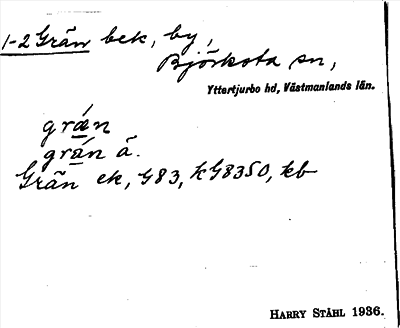 1-2 Grän bek, by,
Björksta sn,
Yttertjurbo hd, Västmanlands län.
grǽn
grǽn å.
Grän ek, G83, kG8350, kb
HARRY STÅHL 1936.